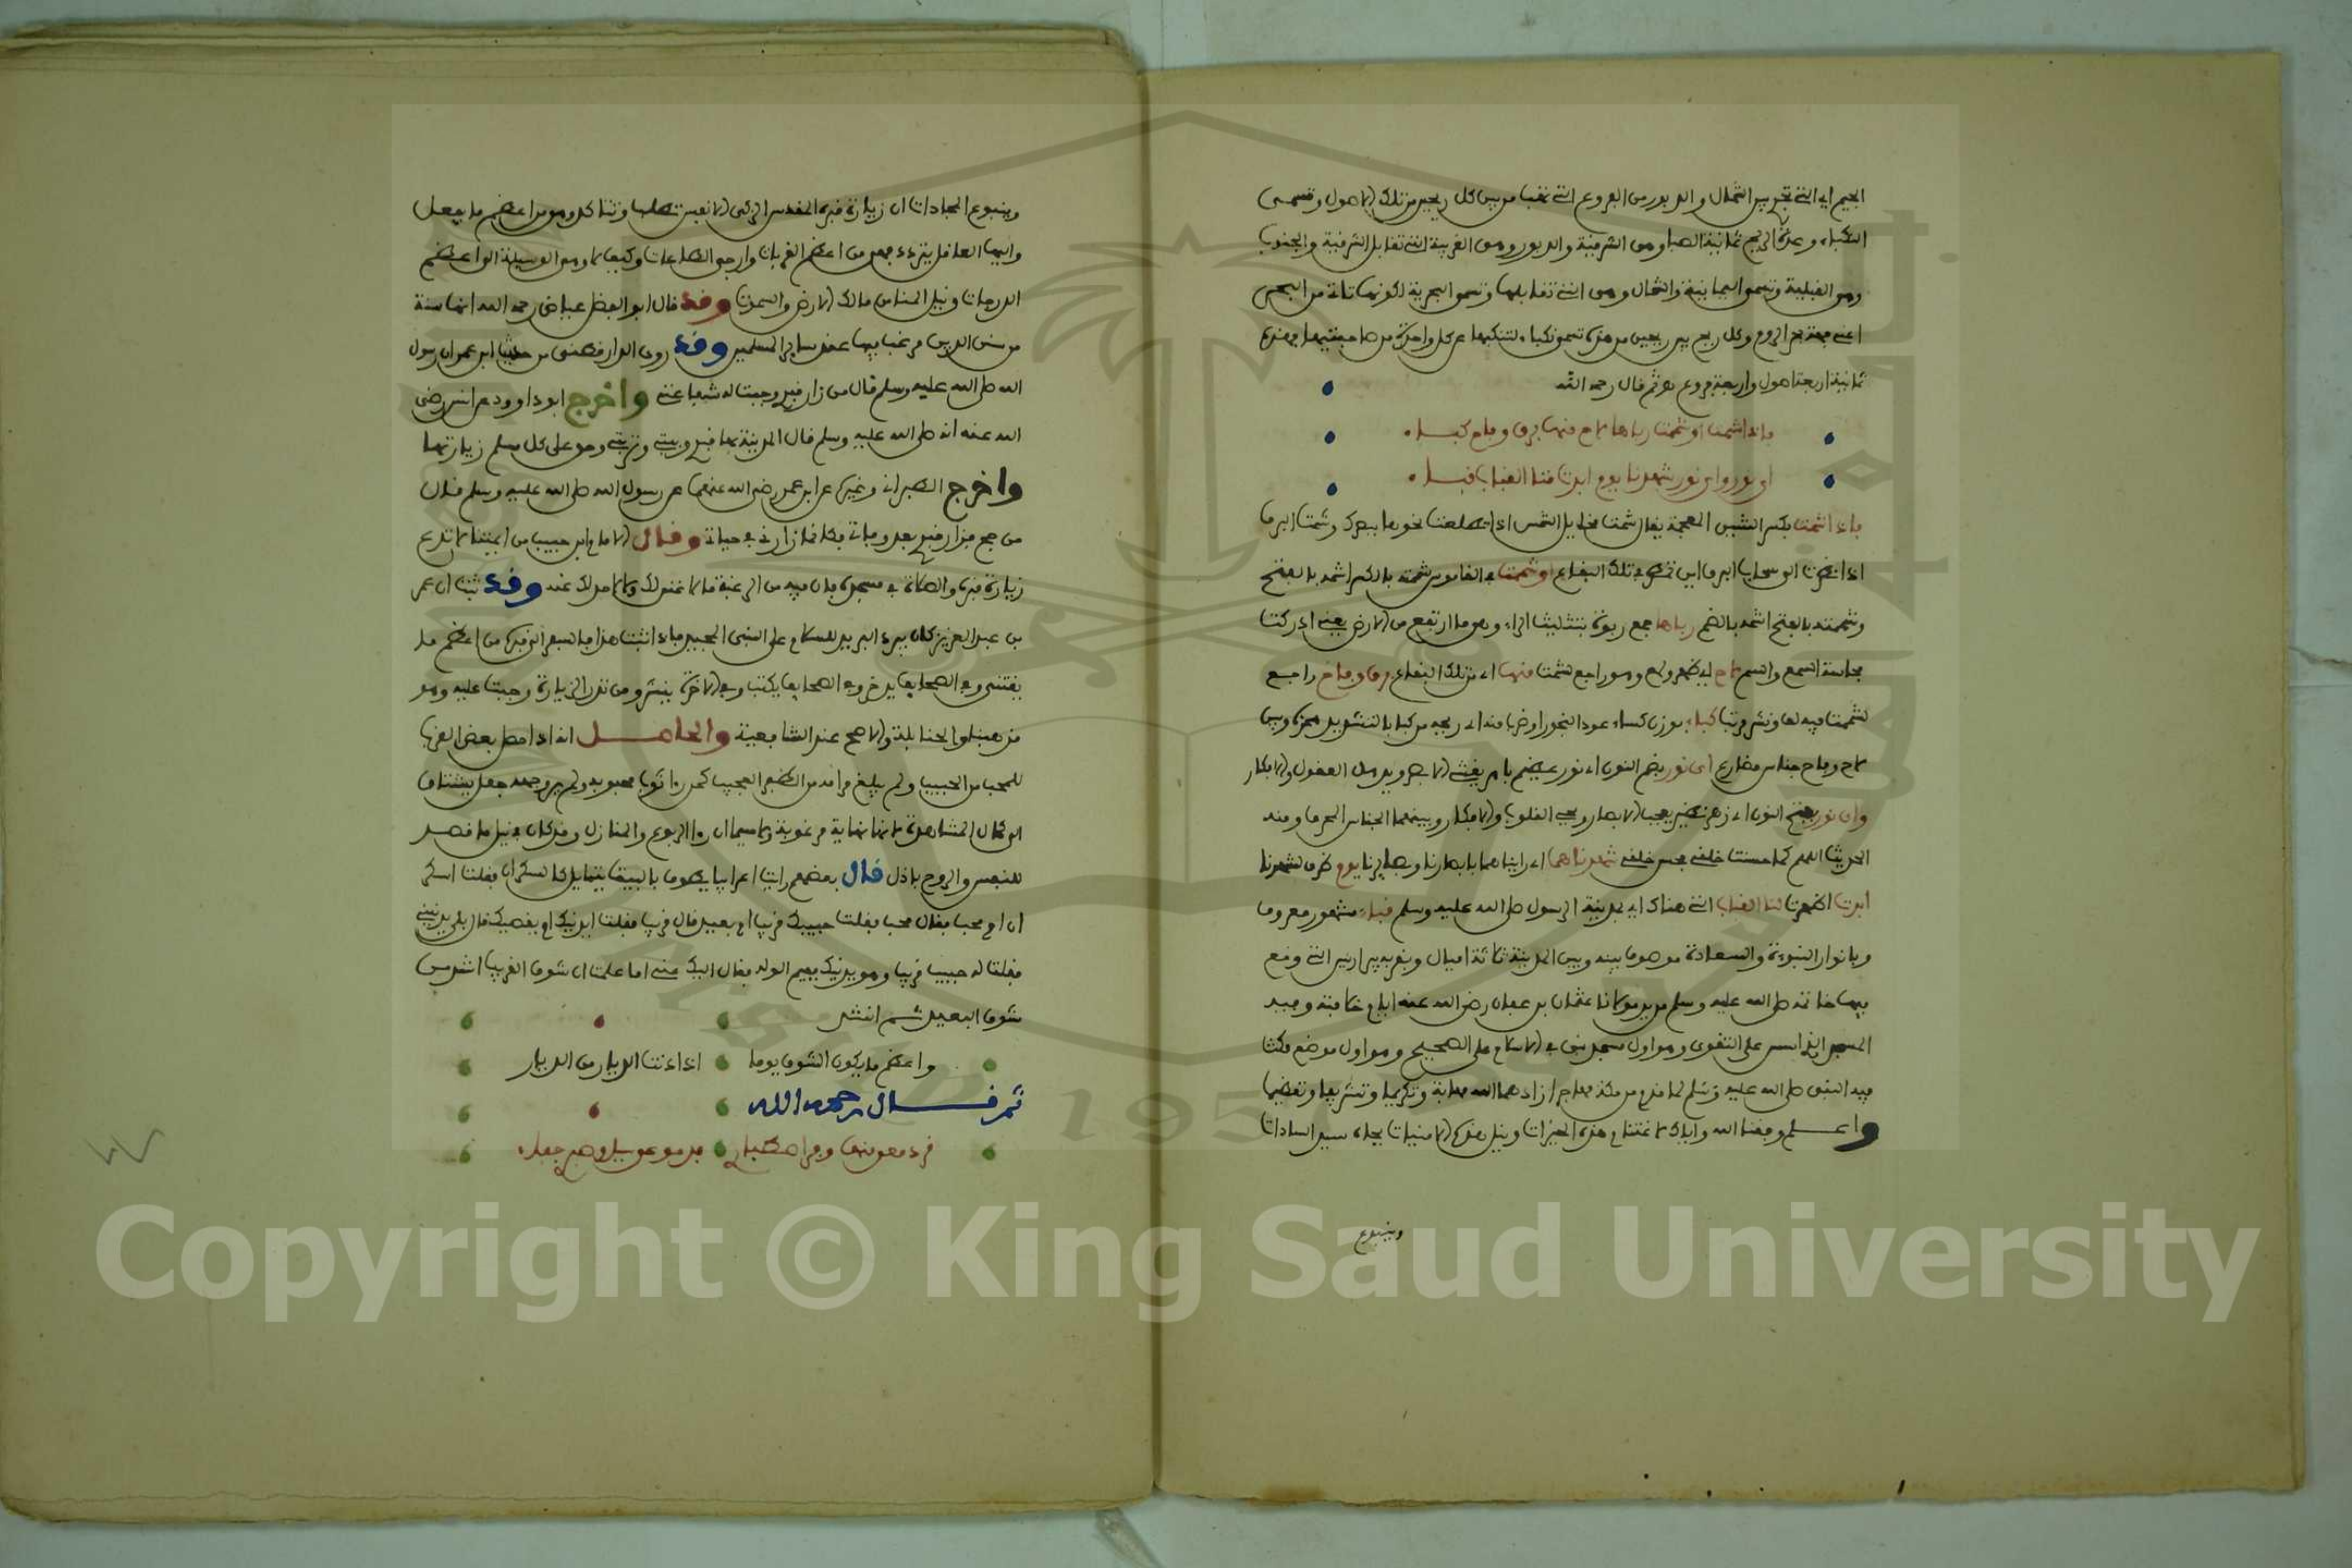 الجيم اي التي تجر بين الشمال والدبور من الفروع التي تهب من بين كل ريحين من تلك الاصول وتسمى
النكباء وعدة الريح ثمانية الصبا وهي الشرقية والدبور وهي الغربية التي تقابل الشرقية والجنوب
وهي القبلية وتسمى اليمانية والشمال وهي التي تقابلها وتسمى البحرية لكونها تاتي من البحر
اعني جهة بحر الروم وكل ريح بين ريحين من هذه تسمى نكباء لتنكبها عن كل واحدة من صاحبتيها فهذه
ثمانية اربعة اصول واربعة فروع ثم قال رحمه الله
فاذا شمت او شممت رباها لاح منها برق وفاح كباء
اي نور واي نور شهدنا يوم ابدت لنا القباب قباء
فاذا شمت بكسر الشين المعجمة يقال شمت مخايل الشمس اذا تطلعت نحوها ببصرك وشمت البرق
اذا نظرت الى سحاب البرق اين تمطر تلك البقاع او شممت في القاموس شمته بالكسر اشمه بالفتح
وشممته بالفتح اشمه بالضم رباها جمع ربوة بتثليث الراء وهو ما ارتفع من الارض يعني ادركت
بحاسة الشم لاح اي ظهر ولمع وهو راجع لشمت منها اي من تلك البقاع برق وفاح راجع
لشممت ففيه لف ونشر مرتب كباء بوزن كساء عود البخور او ضرب منه
لاح وفاح جناس مضارع اي نور بضم النون اي نور عظيم
واي نور بفتح النون اي زهر نضير يعجب الابصار ويحيي القلوب والافكار وبينهما الجناس المحرف ومنه
الحديث اللهم كما حسنت خلقي فحسن خلقي شهدناهما اي رايناهما بابصارنا وبصائرنا يوم ظرف لشهدنا
ابدت اظهرت لنا القباب التي هناك اي بمدينة الرسول صلى الله عليه وسلم قباء مشهور معروف
وبانوار النبوة والسعادة موصوف بينه وبين المدينة ثلاثة اميال وبقربه بير اريس التي وقع
فيها خاتمه صلى الله عليه وسلم من يد مولانا عثمان بن عفان رضي الله عنه ايام خلافته وفيه
المسجد الذي اسس على التقوى وهو اول مسجد بني في الاسلام على الصحيح وهو اول موضع مكث
فيه النبي صلى الله عليه وسلم لما قدم من مكة مهاجرا زادهما الله مهابة وتكريما وتشريفا وتعظيما
واعلم وفقنا الله واياك لاغتنام هذه الخيرات ونيل هذه الامنيات بجاه سيد السادات
وينبوع
وينبوع المجادات ان زيارة قبره المقدس الزكي الانفس تطلب وتتاكد وهو من اعظم ما يفعل
وايها العاقل بتردد فهي من اعظم القربات وارجى الطاعات وكيف لا وهو الوسيلة الى اعظم
الدرجات ونيل المنا من مالك الارض والسموات وقد قال ابو الفضل عياض رحمه الله انها سنة
من سنن الدين مرغب فيها عند ساير المسلمين وقد روى الدارقطني من حديث ابن عمر ان رسول
الله صلى الله عليه وسلم قال من زار قبري وجبت له شفاعتي واخرج ابو داوود عن انس رضي
الله عنه انه صلى الله عليه وسلم قال المدينة بها قبري وبيتي وتربتي وحق على كل مسلم زيارتها
واخرج الطبراني وغيره عن ابن عمر رضي الله عنهما عن رسول الله صلى الله عليه وسلم قال
من حج فزار قبري بعد وفاتي فكانما زارني في حياتي وقال الامام ابن حبيب من ايمتنا لا تدع
زيارة قبره والصلاة في مسجده فان فيه من الرغبة ما لا غنى لك ولا لاحد عنه وقد ثبت ان عمر
بن عبد العزيز كان يبرد البريد للسلام على النبي الحبيب فاذا ثبت هذا فالسفر الى قبره من اعظم ما
يقتنى وفي الصحايف يدخر وفي الصحايف يكتب وفي الاخرة ينشر ومن نذر الزيارة وجبت عليه وهو
مذهبنا والحنابلة والاصح عند الشافعية والحاصل انه اذا حصل بعض القرب
للمحب من الحبيب ولم يبلغ مرامه من النظر العجيب كمن را ثوب محبوبه ولم ير وجهه جعل يشتاق
الى كمال المشاهدة لانها نهاية مرغوبة ولا سيما ان را الربوع والمنازل وقد كان في نيل ما قصد
للنفس والروح باذل قال بعضهم رايت اعرابيا يطوف بالبيت يتمايل كالسكران فقلت اسكر
ان ام محب فقال محب فقلت حبيبك قريب ام بعيد قال قريب فقلت ايدنيك ام يقصيك قال بل يدنيني
فقلت له حبيب قريب وهو يدنيك ففيم الوله فقال اليك عني اما علمت ان شوق القريب اشد من
شوق البعيد ثم انشد
واعظم ما يكون الشوق يوما اذا دنت الديار من الديار
ثم قال رحمه الله